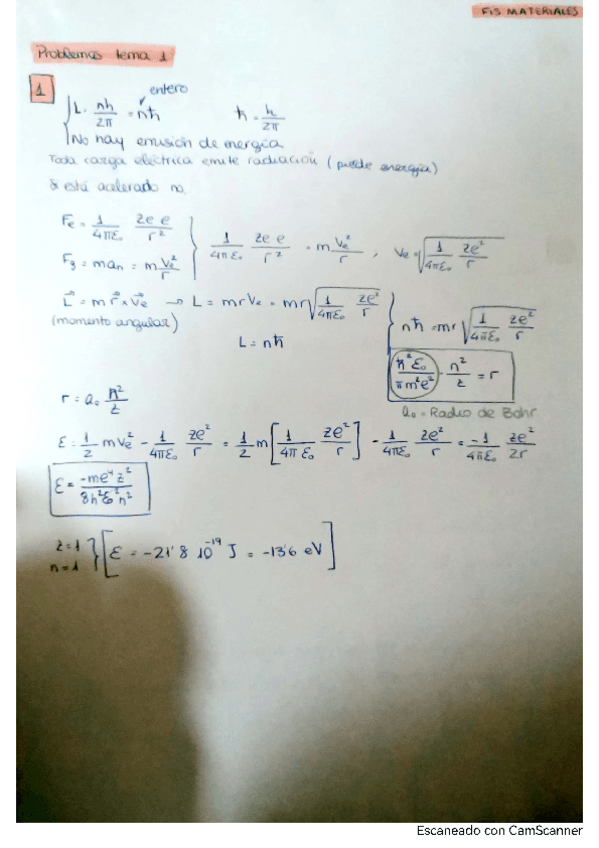 FIS MATERIALES
Problemas tema 1
1
entero
L = nh/2π = nħ    ħ = h/2π
No hay emisión de energía
Toda carga eléctrica emite radiación (pierde energía)
Si está acelerado no.
Fe = 1/4πε₀ ze e/r²    1/4πε₀ ze e/r² = m Ve²/r , Ve = √(1/4πε₀ ze²/r)
Fg = m an = m Ve²/r
L = m r x Ve → L = m r Ve = mr√(1/4πε₀ ze²/r)    nħ = mr√(1/4πε₀ ze²/r)
(momento angular)
L = nħ
h²ε₀/πm²e² · n²/z = r
r = a₀ n²/z    a₀ = Radio de Bohr
ε = 1/2 mVe² - 1/4πε₀ ze²/r = 1/2 m[1/4πε₀ ze²/r] - 1/4πε₀ ze²/r = -1/4πε₀ ze²/2r
ε = -me⁴z²/8h²ε₀²n²
z=1
n=1 } [ε = -21'8 10⁻¹⁹ J = -13'6 eV]
Escaneado con CamScanner